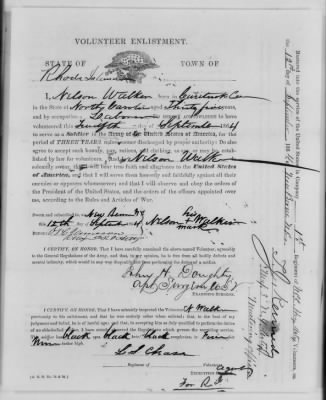 VOLUNTEER ENLISTMENT.
STATE OF TOWN OF
Rhode Island
I, Nelson Walker born in Currituck Co
in the State of North Carolina aged Thirty five years,
and by occupation a Laborer Do hereby acknowledge to have
volunteered this Twelfth day of September 1864
to serve as a Soldier in the Army of the United States of America, for the
period of THREE YEARS unless sooner discharged by proper authority: Do also
agree to accept such bounty, pay, rations, and clothing, as are, or may be, established
by law for volunteers. And I, Nelson Walker do
solemnly swear, that I will bear true faith and allegiance to the United States
of America, and that I will serve them honestly and faithfully against all their
enemies or opposers whomsoever; and that I will observe and obey the orders
of the President of the United States, and the orders of the officers appointed over
me, according to the Rules and Articles of War.
Sworn and subscribed to, at New Bern N.C.
this 12th day of September 1864
Nelson his Walker
mark
I CERTIFY, ON HONOR, That I have carefully examined the above-named Volunteer, agreeably
to the General Regulations of the Army, and that, in my opinion, he is free from all bodily defects
and mental infirmity, which would in any way disqualify him from performing the duties of a soldier.
John H. Doughty
EXAMINING SURGEON.
I CERTIFY, ON HONOR, That I have minutely inspected the Volunteer, N Walker
previously to his enlistment, and that he was entirely sober when enlisted; that, to the best of my
judgment and belief, he is of lawful age; and that, in accepting him as duly qualified to perform the duties
of an able-bodied soldier, I have strictly observed the Regulations which govern the recruiting service.
This soldier has black eyes, black hair, black complexion, is Five feet
Nine inches high.
L S Chase
Regiment of Volunteers,
Agent
RECRUITING OFFICER.
For R. I.
(A. G. O. No. 74 & 76.)
Mustered into the service of the United States, in Company
the 12th day of September 1864, at New Berne N.C.
Regiment of
Volunteers, on
Mustering Officer